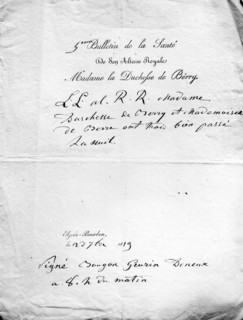 5ème Bulletin de la Santé
de Son Altesse Royale
Madame la Duchesse de Berry.
LL al. R. R. Madame
Duchesse de Berry et Mademoiselle
de Berri ont très bien passé
la nuit.
Elysée-Bourbon,
le 23 7bre 1819
Signé Bougon Guérin Deneux
a 8. h du matin